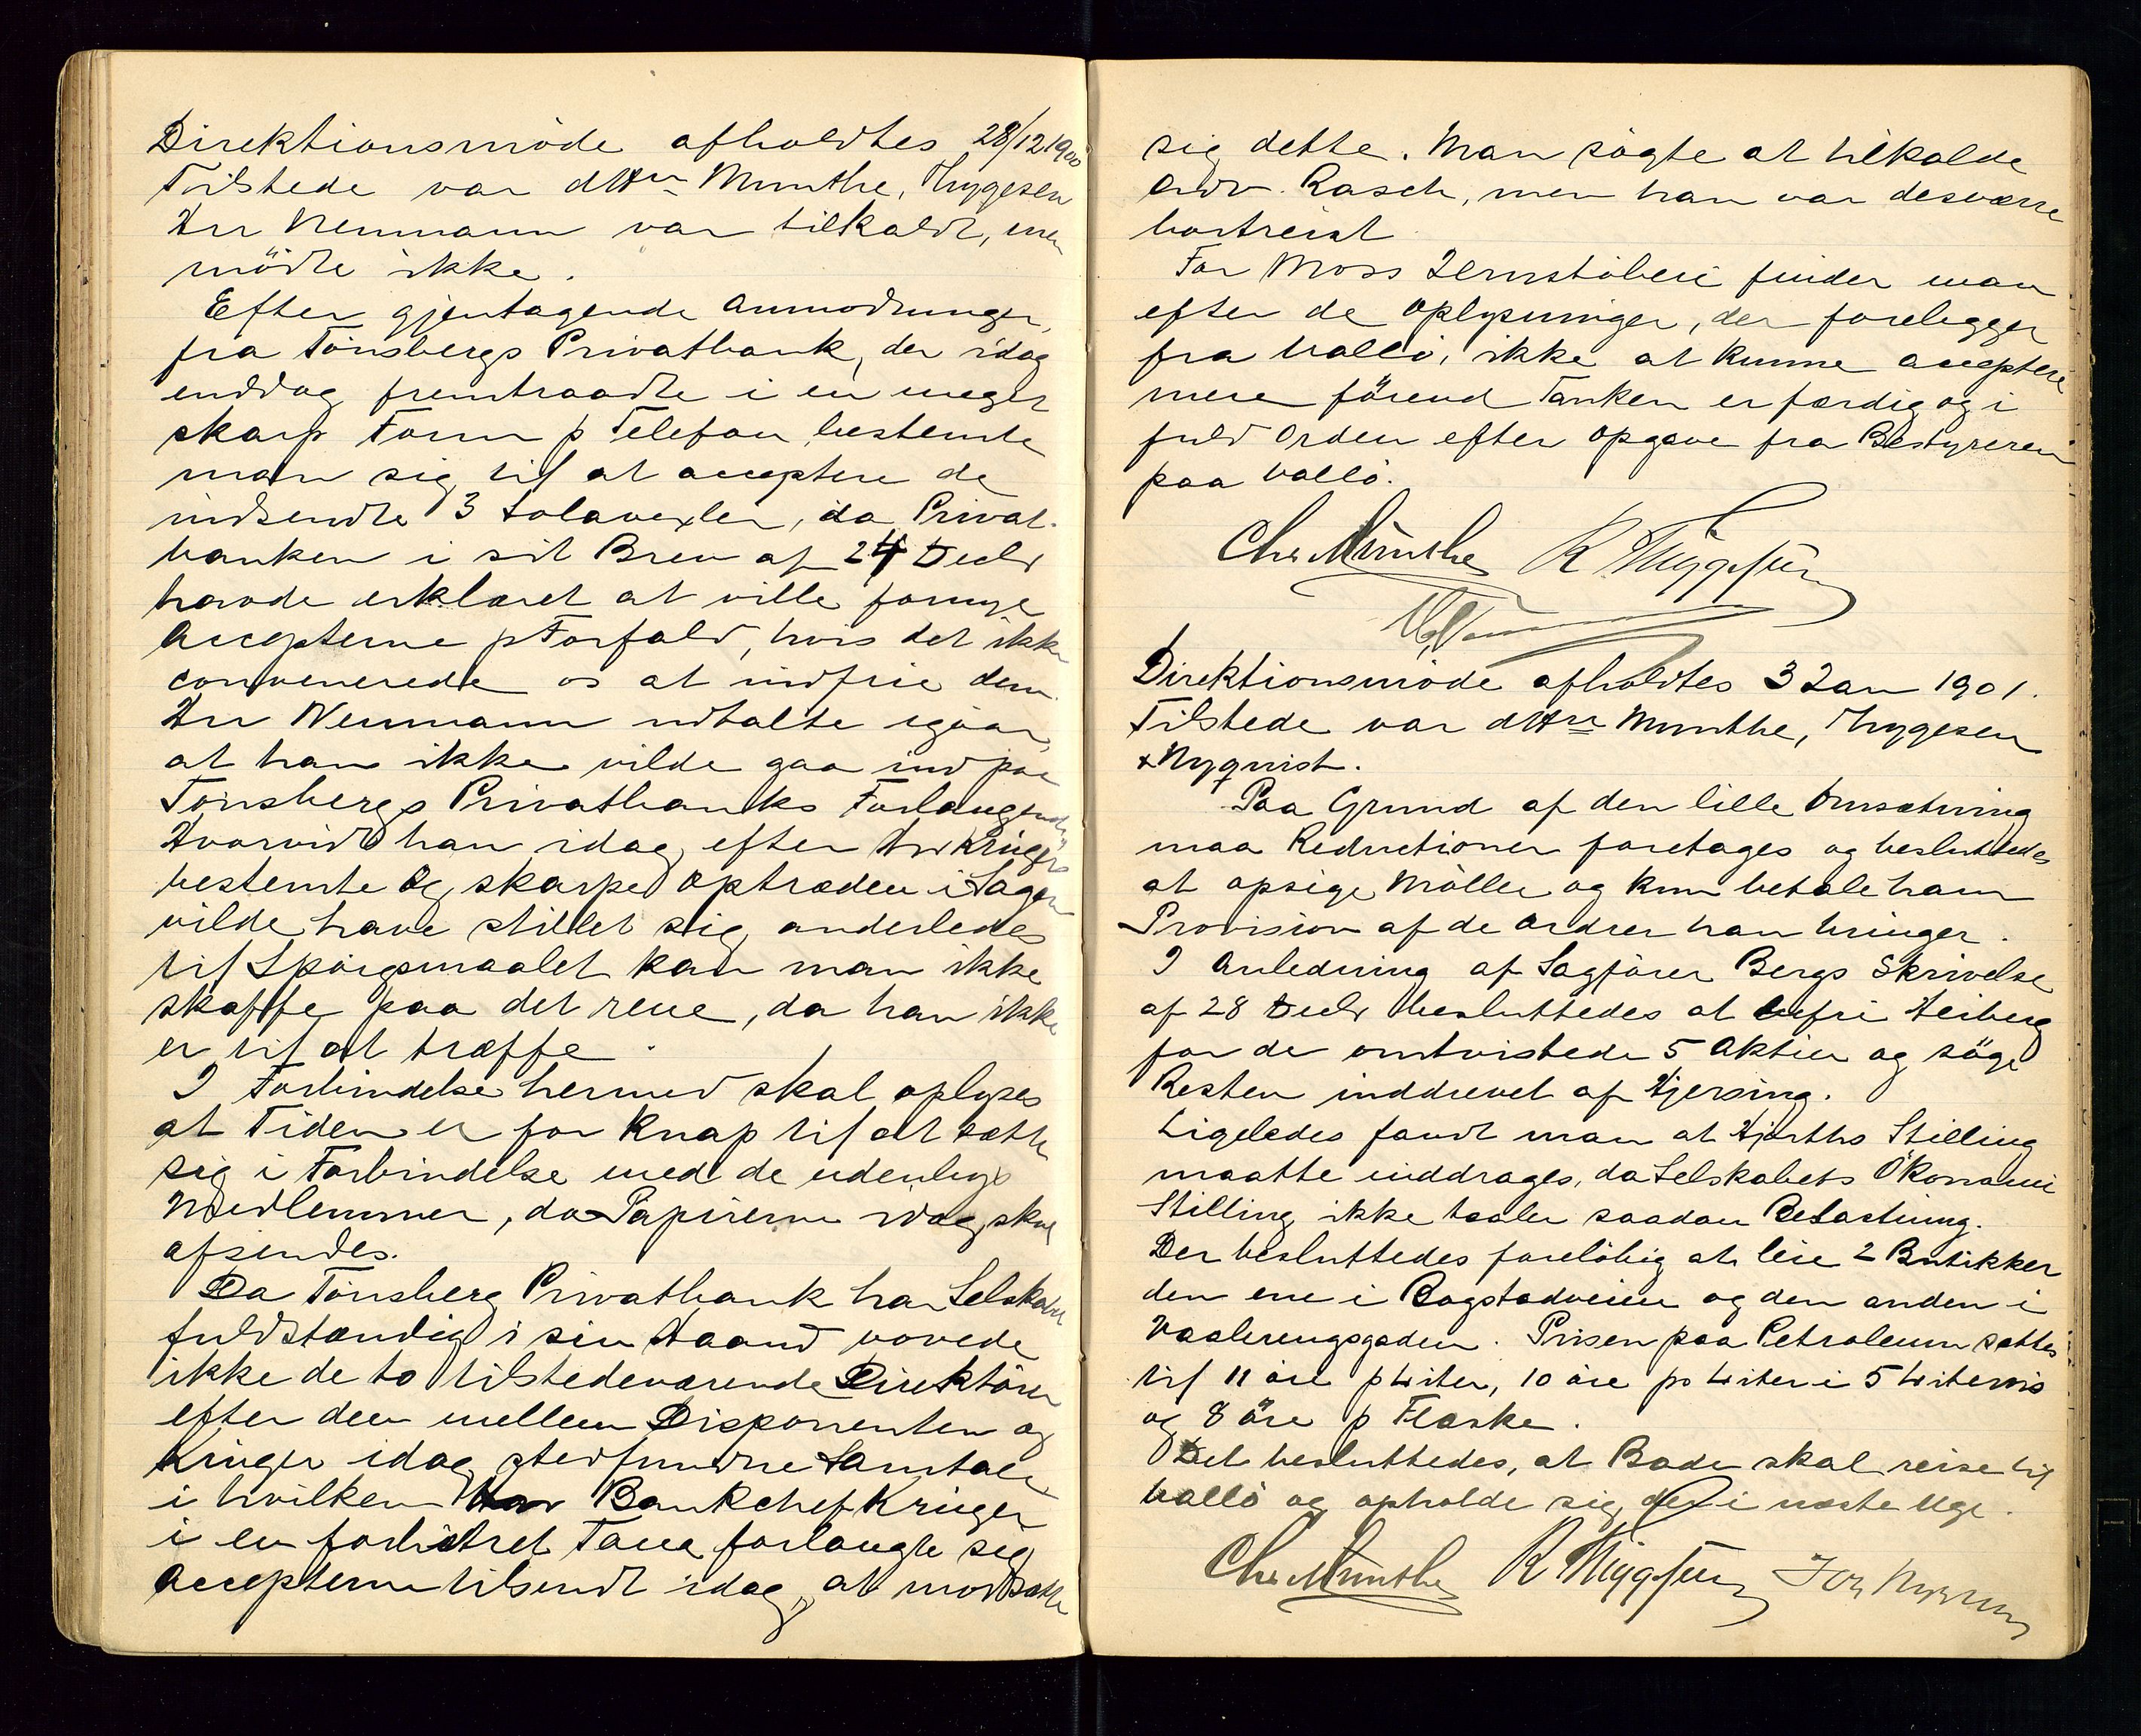 Direktionsmöde afholdtes 28/12 1900
Tilstede var dHrr Munthe, Thygesen
Hrr Neumann var tilkaldt, men
mödte ikke.
Efter gjentagende Anmodninger
fra Tönsbergs Privatbank, der idag
enddog fremtraadte i en meget
skarp Form p Telefon bestemte
man sig til at acceptere de
indsendte 3 Solavexler, da Privat-
banken i sit Brev af 24 Decbr
havde erklæret at ville fornye
Accepterne p Forfald, hvis det ikke
convenerede os at indfrie dem.
Hrr Neumann udtalte igaar,
at han ikke vilde gaa ind paa
Tönsbergs Privatbanks Forlangende
Hvorvidt han idag efter Hrr Krügers
bestemte og skarpe Optræden i Sagen
vilde have stillet sig anderledes
til Spörgsmaalet kan man ikke
skaffe paa det rene, da han ikke
er til at træffe.
I Forbindelse hermed skal oplyses
at Tiden er for knap til at sætte
sig i Forbindelse med de udenbys
Medlemmer, da Papirerne idag skal
afsendes.
Da Tönsberg Privatbank har Selskabet
fuldstændig i sin Haand vovede
ikke de to tilstedeværende Direktörer
efter den mellem Disponenten og
Krüger idag stedfundne Samtale
i hvilken Bankchef Krüger
i en forbitret Tone forlangte sig
Accepterne tilsendt idag, at modsætte
sig dette. Man sögte at tilkalde
Adv. Rasch, men han var desværre
bortreist
For Moss Jernstöberi finder man
efter de Oplysninger, der foreligger
fra Vallö, ikke at kunne acceptere
mere förend Tanken er færdig og i
fuld Orden efter Opgave fra Bestyreren
paa Vallö.
Chr Munthe R. Thygesen
Direktionsmöde afholdtes 3 Jan 1901.
Tilstede var dHrr Munthe, Thygesen
& Nyquist.
Paa Grund af den lille Omsætning
maa Reductioner foretages og besluttedes
at opsige Möller og kun betale ham
Provision af de Ordrer han bringer.
I Anledning af Sagförer Bergs Skrivelse
af 28 Decbr besluttedes at befri Heiberg
for de omtvistede 5 Aktier og söge
Resten inddrevet af Hjersing.
Ligeledes fandt man at Hjorths Stilling
maatte inddrages, da Selskabets Ökonomi
Stilling ikke taaler saadan Belastning.
Der besluttedes forelöbig at leie 2 Butikker
den ene i Bogstadveien og den anden i
Vaalerengsgaden. Prisen paa Petroleum sattes
til 11 öre p Liter, 10 öre pr Liter i 5 Litervis
og 8 öre p Flaske.
Det besluttedes, at Bade skal reise til
Vallö og opholde sig der i næste Uge.
Chr Munthe R Thygesen Joh Nyquist